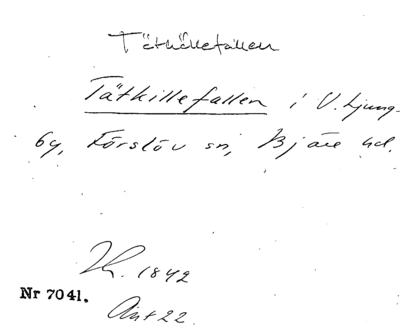 Täthållefallen
Tätkillefallen i V. Ljung-
by, Förslöv sn, Bjäre hd.
Lh. 1842
Nr 7041.
Ant 22.